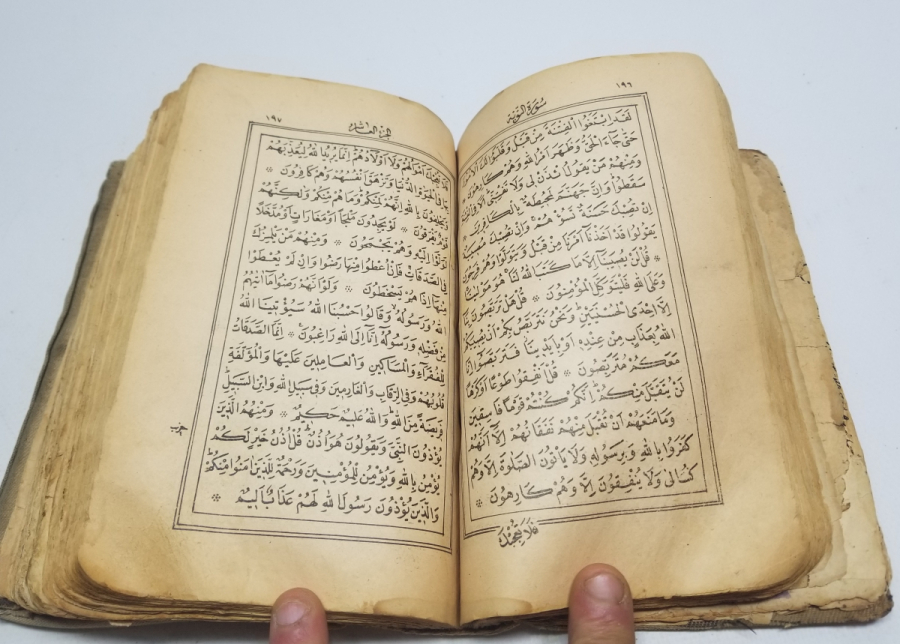 ١٩٦ سورة التوبة
لَقَدِ ابْتَغَوُا الْفِتْنَةَ مِنْ قَبْلُ وَقَلَّبُوا لَكَ الْاُمُورَ
حَتّٰى جَاءَ الْحَقُّ وَظَهَرَ اَمْرُ اللهِ وَهُمْ كَارِهُونَ
وَمِنْهُمْ مَنْ يَقُولُ ائْذَنْ لِى وَلَا تَفْتِنِّى اَلَا فِى الْفِتْنَةِ
سَقَطُوا وَاِنَّ جَهَنَّمَ لَمُحِيطَةٌ بِالْكَافِرِينَ
اِنْ تُصِبْكَ حَسَنَةٌ تَسُؤْهُمْ وَاِنْ تُصِبْكَ مُصِيبَةٌ
يَقُولُوا قَدْ اَخَذْنَا اَمْرَنَا مِنْ قَبْلُ وَيَتَوَلَّوْا وَهُمْ فَرِحُونَ
* قُلْ لَنْ يُصِيبَنَا اِلَّا مَا كَتَبَ اللهُ لَنَا هُوَ مَوْلٰينَا
وَعَلَى اللهِ فَلْيَتَوَكَّلِ الْمُؤْمِنُونَ * قُلْ هَلْ تَرَبَّصُونَ بِنَا
اِلَّا اِحْدَى الْحُسْنَيَيْنِ وَنَحْنُ نَتَرَبَّصُ بِكُمْ اَنْ يُصِيبَكُمُ
اللهُ بِعَذَابٍ مِنْ عِنْدِهِ اَوْ بِاَيْدِينَا فَتَرَبَّصُوا اِنَّا
مَعَكُمْ مُتَرَبِّصُونَ * قُلْ اَنْفِقُوا طَوْعًا اَوْ كَرْهًا
لَنْ يُتَقَبَّلَ مِنْكُمْ اِنَّكُمْ كُنْتُمْ قَوْمًا فَاسِقِينَ
وَمَا مَنَعَهُمْ اَنْ تُقْبَلَ مِنْهُمْ نَفَقَاتُهُمْ اِلَّا اَنَّهُمْ
كَفَرُوا بِاللهِ وَبِرَسُولِهِ وَلَا يَأْتُونَ الصَّلٰوةَ اِلَّا وَهُمْ
كُسَالٰى وَلَا يُنْفِقُونَ اِلَّا وَهُمْ كَارِهُونَ *
فَلَا تُعْجِبْكَ
الجزء العاشر ١٩٧
فَلَا تُعْجِبْكَ اَمْوَالُهُمْ وَلَا اَوْلَادُهُمْ اِنَّمَا يُرِيدُ اللهُ لِيُعَذِّبَهُمْ
بِهَا فِى الْحَيٰوةِ الدُّنْيَا وَتَزْهَقَ اَنْفُسُهُمْ وَهُمْ كَافِرُونَ *
وَيَحْلِفُونَ بِاللهِ اِنَّهُمْ لَمِنْكُمْ وَمَا هُمْ مِنْكُمْ وَلٰكِنَّهُمْ
قَوْمٌ يَفْرَقُونَ * لَوْ يَجِدُونَ مَلْجَاً اَوْ مَغَارَاتٍ اَوْ مُدَّخَلًا
لَوَلَّوْا اِلَيْهِ وَهُمْ يَجْمَحُونَ * وَمِنْهُمْ مَنْ يَلْمِزُكَ
فِى الصَّدَقَاتِ فَاِنْ اُعْطُوا مِنْهَا رَضُوا وَاِنْ لَمْ يُعْطَوْا
مِنْهَا اِذَا هُمْ يَسْخَطُونَ * وَلَوْ اَنَّهُمْ رَضُوا مَا اٰتٰيهُمُ
اللهُ وَرَسُولُهُ وَقَالُوا حَسْبُنَا اللهُ سَيُؤْتِينَا اللهُ
مِنْ فَضْلِهِ وَرَسُولُهُ اِنَّا اِلَى اللهِ رَاغِبُونَ * اِنَّمَا الصَّدَقَاتُ
لِلْفُقَرَاءِ وَالْمَسَاكِينِ وَالْعَامِلِينَ عَلَيْهَا وَالْمُؤَلَّفَةِ
قُلُوبُهُمْ وَفِى الرِّقَابِ وَالْغَارِمِينَ وَفِى سَبِيلِ اللهِ وَابْنِ السَّبِيلِ
فَرِيضَةً مِنَ اللهِ وَاللهُ عَلِيمٌ حَكِيمٌ * وَمِنْهُمُ الَّذِينَ
يُؤْذُونَ النَّبِىَّ وَيَقُولُونَ هُوَ اُذُنٌ قُلْ اُذُنُ خَيْرٍ لَكُمْ
يُؤْمِنُ بِاللهِ وَيُؤْمِنُ لِلْمُؤْمِنِينَ وَرَحْمَةٌ لِلَّذِينَ اٰمَنُوا مِنْكُمْ
وَالَّذِينَ يُؤْذُونَ رَسُولَ اللهِ لَهُمْ عَذَابٌ اَلِيمٌ *